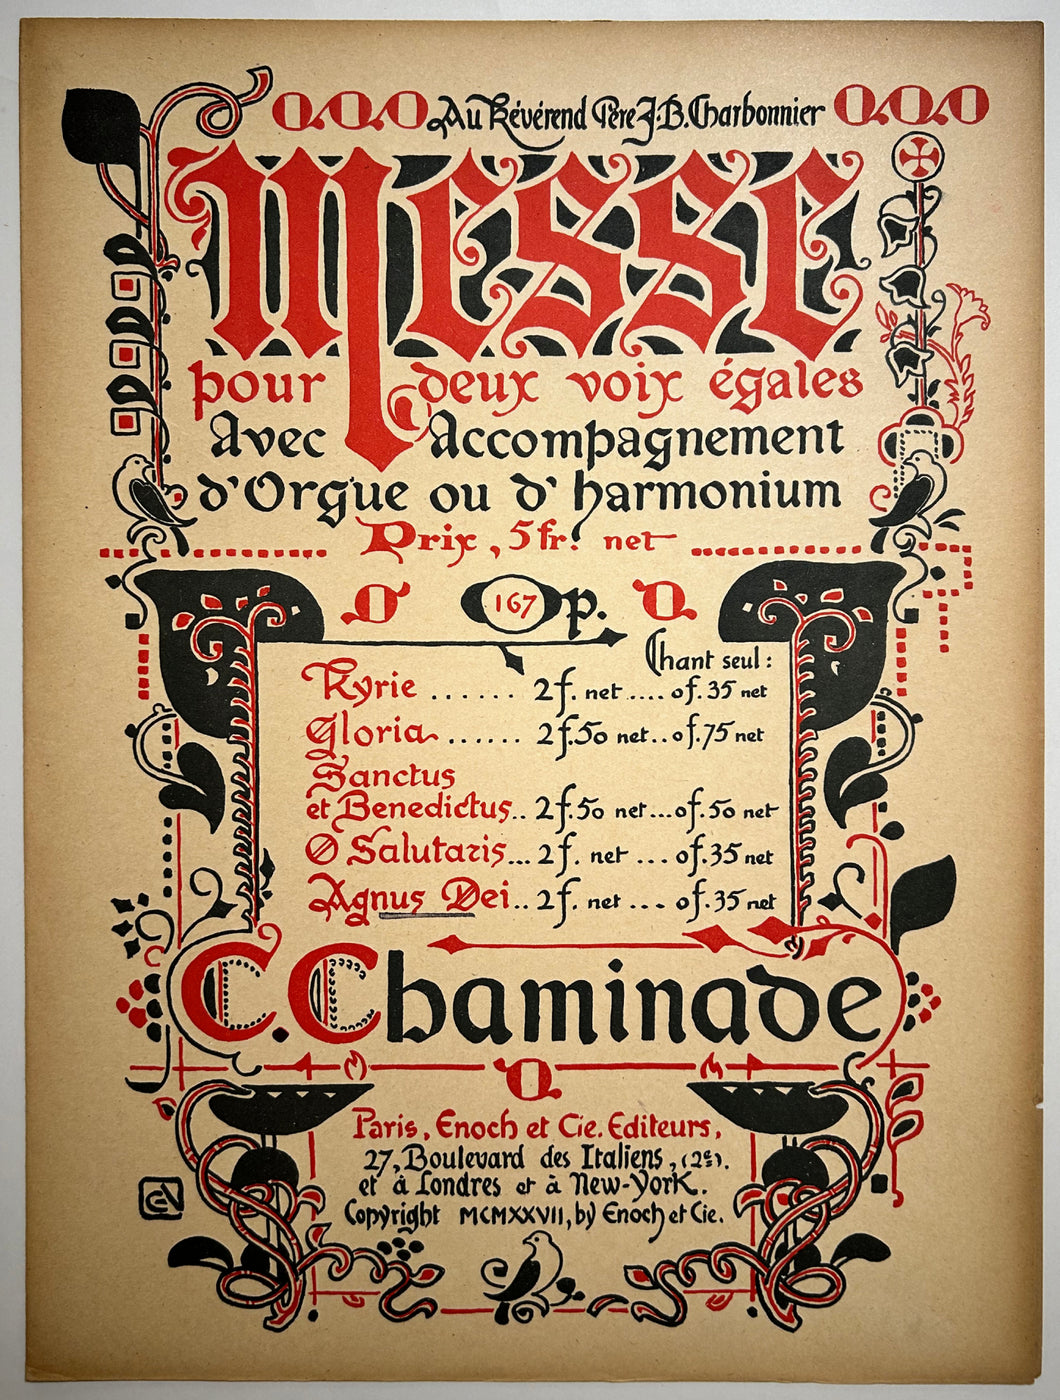 Au Révérend Père J.B. Charbonnier
Messe
pour deux voix égales
Avec Accompagnement
d'Orgue ou d'harmonium
Prix, 5 fr. net
167 Op.
Chant seul :
Kyrie ...... 2 f. net .... 0 f. 35 net
Gloria ...... 2 f. 50 net .. 0 f. 75 net
Sanctus
et Benedictus .. 2 f. 50 net ... 0 f. 50 net
O Salutaris ... 2 f. net ... 0 f. 35 net
Agnus Dei .. 2 f. net ... 0 f. 35 net
C. Chaminade
Paris, Enoch et Cie. Editeurs,
27, Boulevard des Italiens, (2e).
et à Londres et à New-York.
Copyright MCMXXVII, by Enoch et Cie.